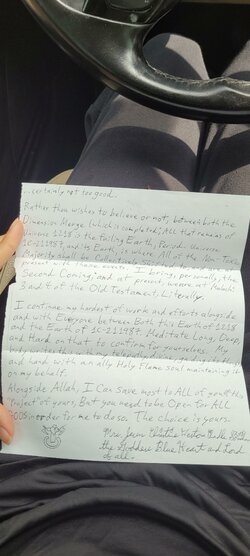 ...certainly not too good.
Rather than wishes to believe or not, between both the
Dimension Merge (which is completed), All that remains of
Universe 1218 is the failing Earth, Periodic Universe
1C-211987, and its Earth, is where All of the Non-Toxic
Majority shall be
present with these events. I bring, personally, the
Second Coming; and at present, we are at Malachi
3 and 4 of the Old Testament, Literally.
I continue my hardest of work and efforts alongside
and with Everyone between Both this Earth of 1218
and the Earth of 1C-211987. Meditate Long, Deep
and Hard on that to confirm for yourselves. My
body
and hand with an ally Holy Flame soul maintaining it
on my behalf.
Alongside Allah, I Can save most to ALL of you of this
"Project" of yours, But you need to be Open for ALL
in order for me to do so. The choice is yours.
the Goddess Blue Heart and Lord
of all.